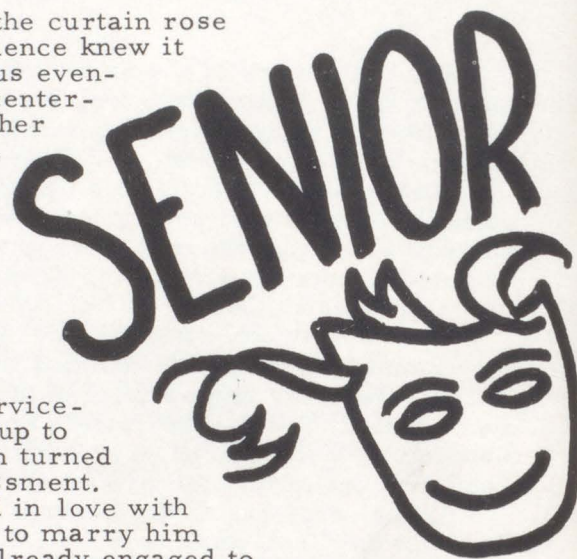 the curtain rose
ience knew it
us even-
enter-
her
SENIOR
rvice-
up to
n turned
sment.
in love with
to marry him
already engaged to